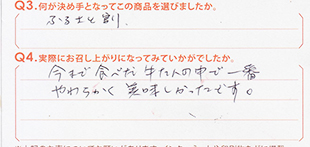 Q3.何が決め手となってこの商品を選びましたか。
ふるさと割
Q4.実際にお召し上がりになってみていかがでしたか。
今まで食べた牛たんの中で一番
やわらかく美味しかったです。